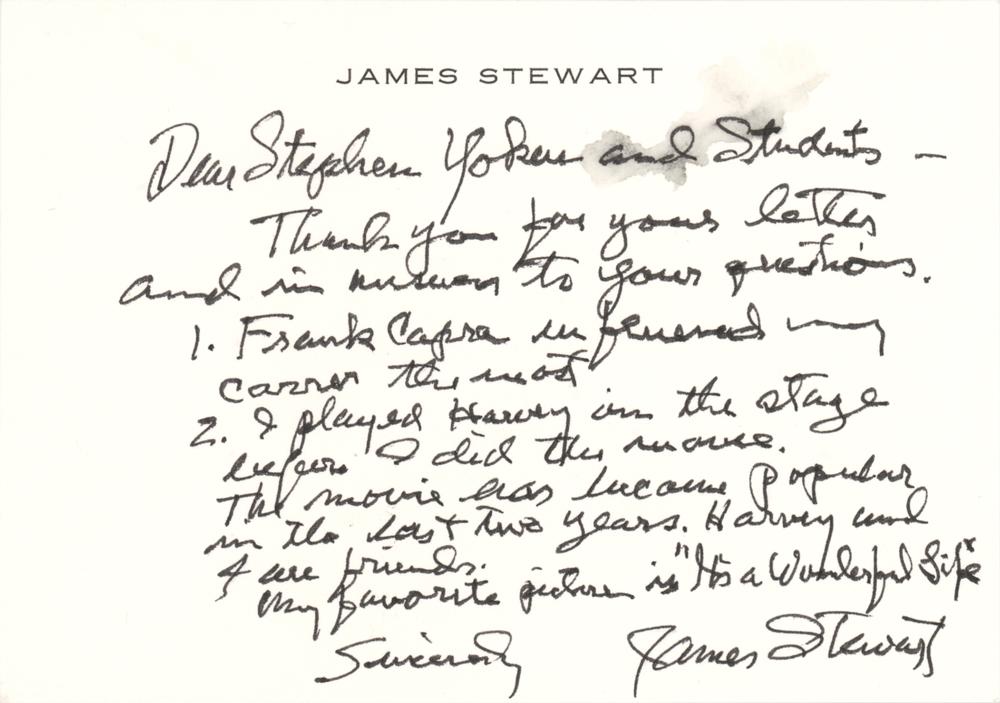 JAMES STEWART
Dear Stephen Yoken and Students —
Thank you for your letter
and in answer to your questions.
1. Frank Capra influenced my
career the most
2. I played Harvey on the stage
before I did the movie.
The movie has become popular
in the last two years. Harvey and
I are friends.
My favorite picture is "It's a Wonderful Life"
Sincerely James Stewart